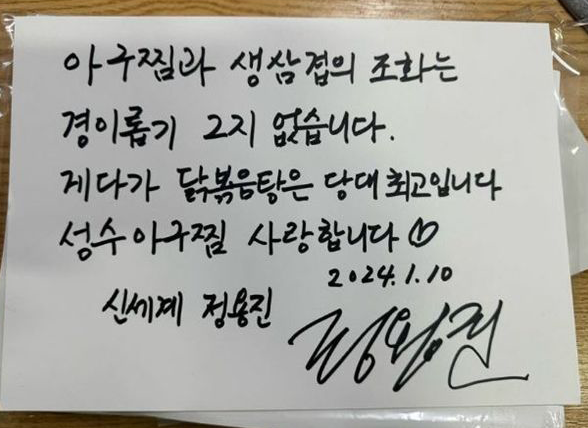 아구찜과 생삼겹의 조화는
경이롭기 그지 없습니다.
게다가 닭볶음탕은 당대 최고입니다
성수아구찜 사랑합니다♡
2024.1.10
신세계 정용진
정용진